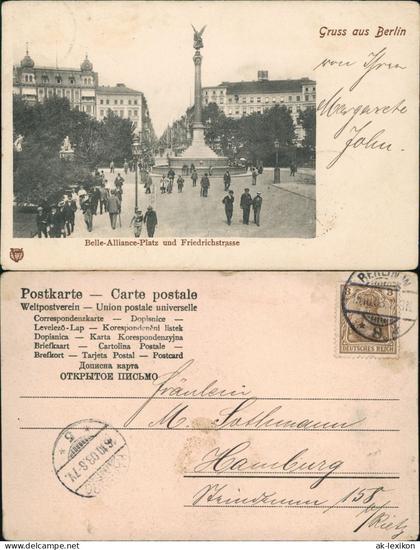 Gruss aus Berlin
von Ihrer
Margarete
John.
Belle-Alliance-Platz und Friedrichstrasse
Postkarte — Carte postale
Weltpostverein — Union postale universelle
Correspondenzkarte — Dopisnice
Levelező-Lap — Korespondenčni listek
Dopisnica — Karta Korespondenzyjna
Briefkaart — Cartolina Postale —
Brefkort — Tarjeta Postal — Postcard
Дописна карта
ОТКРЫТОЕ ПИСЬМО
BERLIN
DEUTSCHES REICH
Fräulein
M. Sothmann
Hamburg
158
© ak-lexikon
ak-lexikon.de